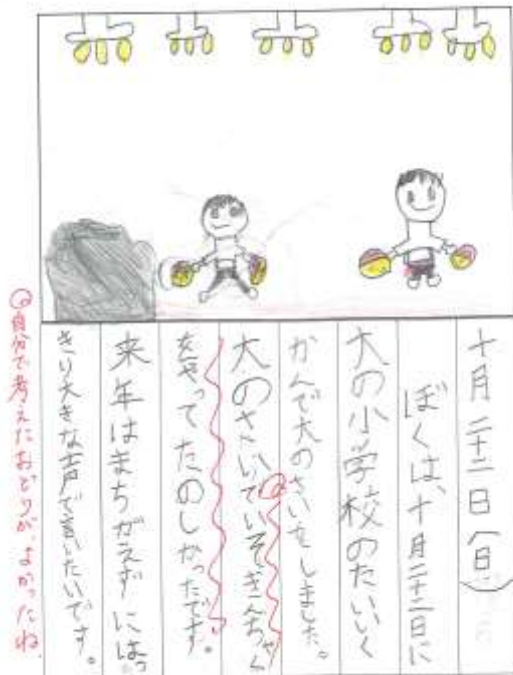 十月二十二日(日)
ぼくは、十月二十二日に
大の小学校のたいいく
かんで大のさいをしました。
大のさいでいそぎんちゃく
をやってたのしかったです。
来年はまちがえずにはっ
きり大きな声で言いたいです。
自分で考えたおどりが、よかったね